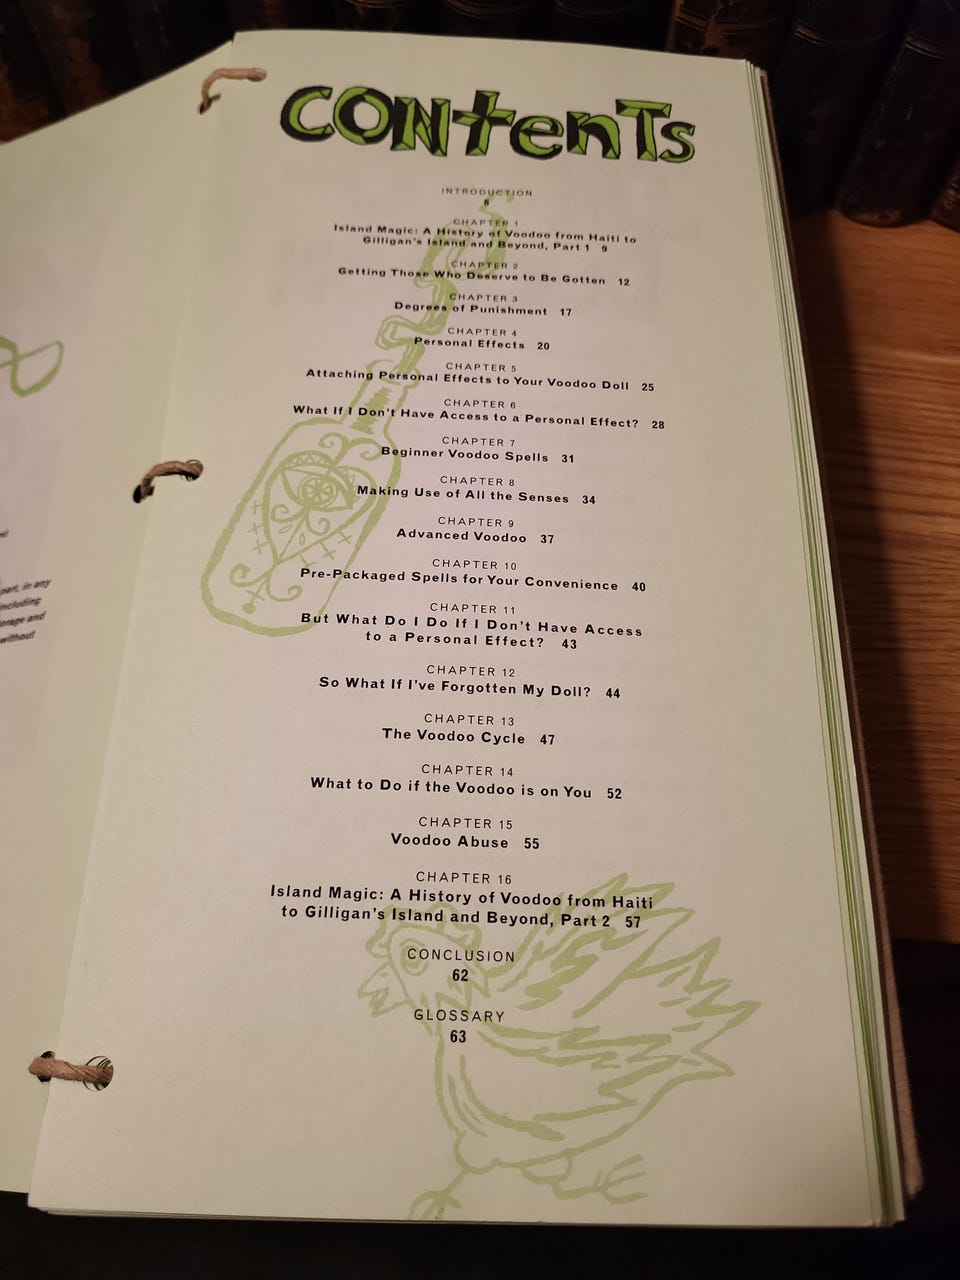 CONtenTs
INTRODUCTION
6
CHAPTER 1
Island Magic: A History of Voodoo from Haiti to
Gilligan's Island and Beyond, Part 1 9
CHAPTER 2
Getting Those Who Deserve to Be Gotten 12
CHAPTER 3
Degrees of Punishment 17
CHAPTER 4
Personal Effects 20
CHAPTER 5
Attaching Personal Effects to Your Voodoo Doll 25
CHAPTER 6
What If I Don't Have Access to a Personal Effect? 28
CHAPTER 7
Beginner Voodoo Spells 31
CHAPTER 8
Making Use of All the Senses 34
CHAPTER 9
Advanced Voodoo 37
CHAPTER 10
Pre-Packaged Spells for Your Convenience 40
CHAPTER 11
But What Do I Do If I Don't Have Access
to a Personal Effect? 43
CHAPTER 12
So What If I've Forgotten My Doll? 44
CHAPTER 13
The Voodoo Cycle 47
CHAPTER 14
What to Do if the Voodoo is on You 52
CHAPTER 15
Voodoo Abuse 55
CHAPTER 16
Island Magic: A History of Voodoo from Haiti
to Gilligan's Island and Beyond, Part 2 57
CONCLUSION
62
GLOSSARY
63
part, in any
including
orage and
without